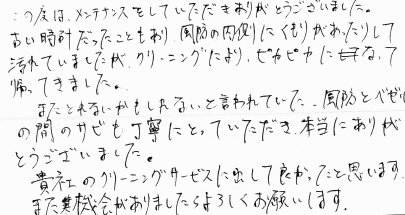 この度は、メンテナンスをしていただきありがとうございました。
古い時計だったこともあり、風防の内側にくもりがあったりして
汚れていましたが、クリーニングにより、ピカピカになって
帰ってきました。
またとれないかもしれないと言われていた、風防とベゼル
の間のサビも丁寧にとっていただき、本当にありが
とうございました。
貴社のクリーニングサービスに出して良かったと思います。
また機会がありましたらよろしくお願いします。